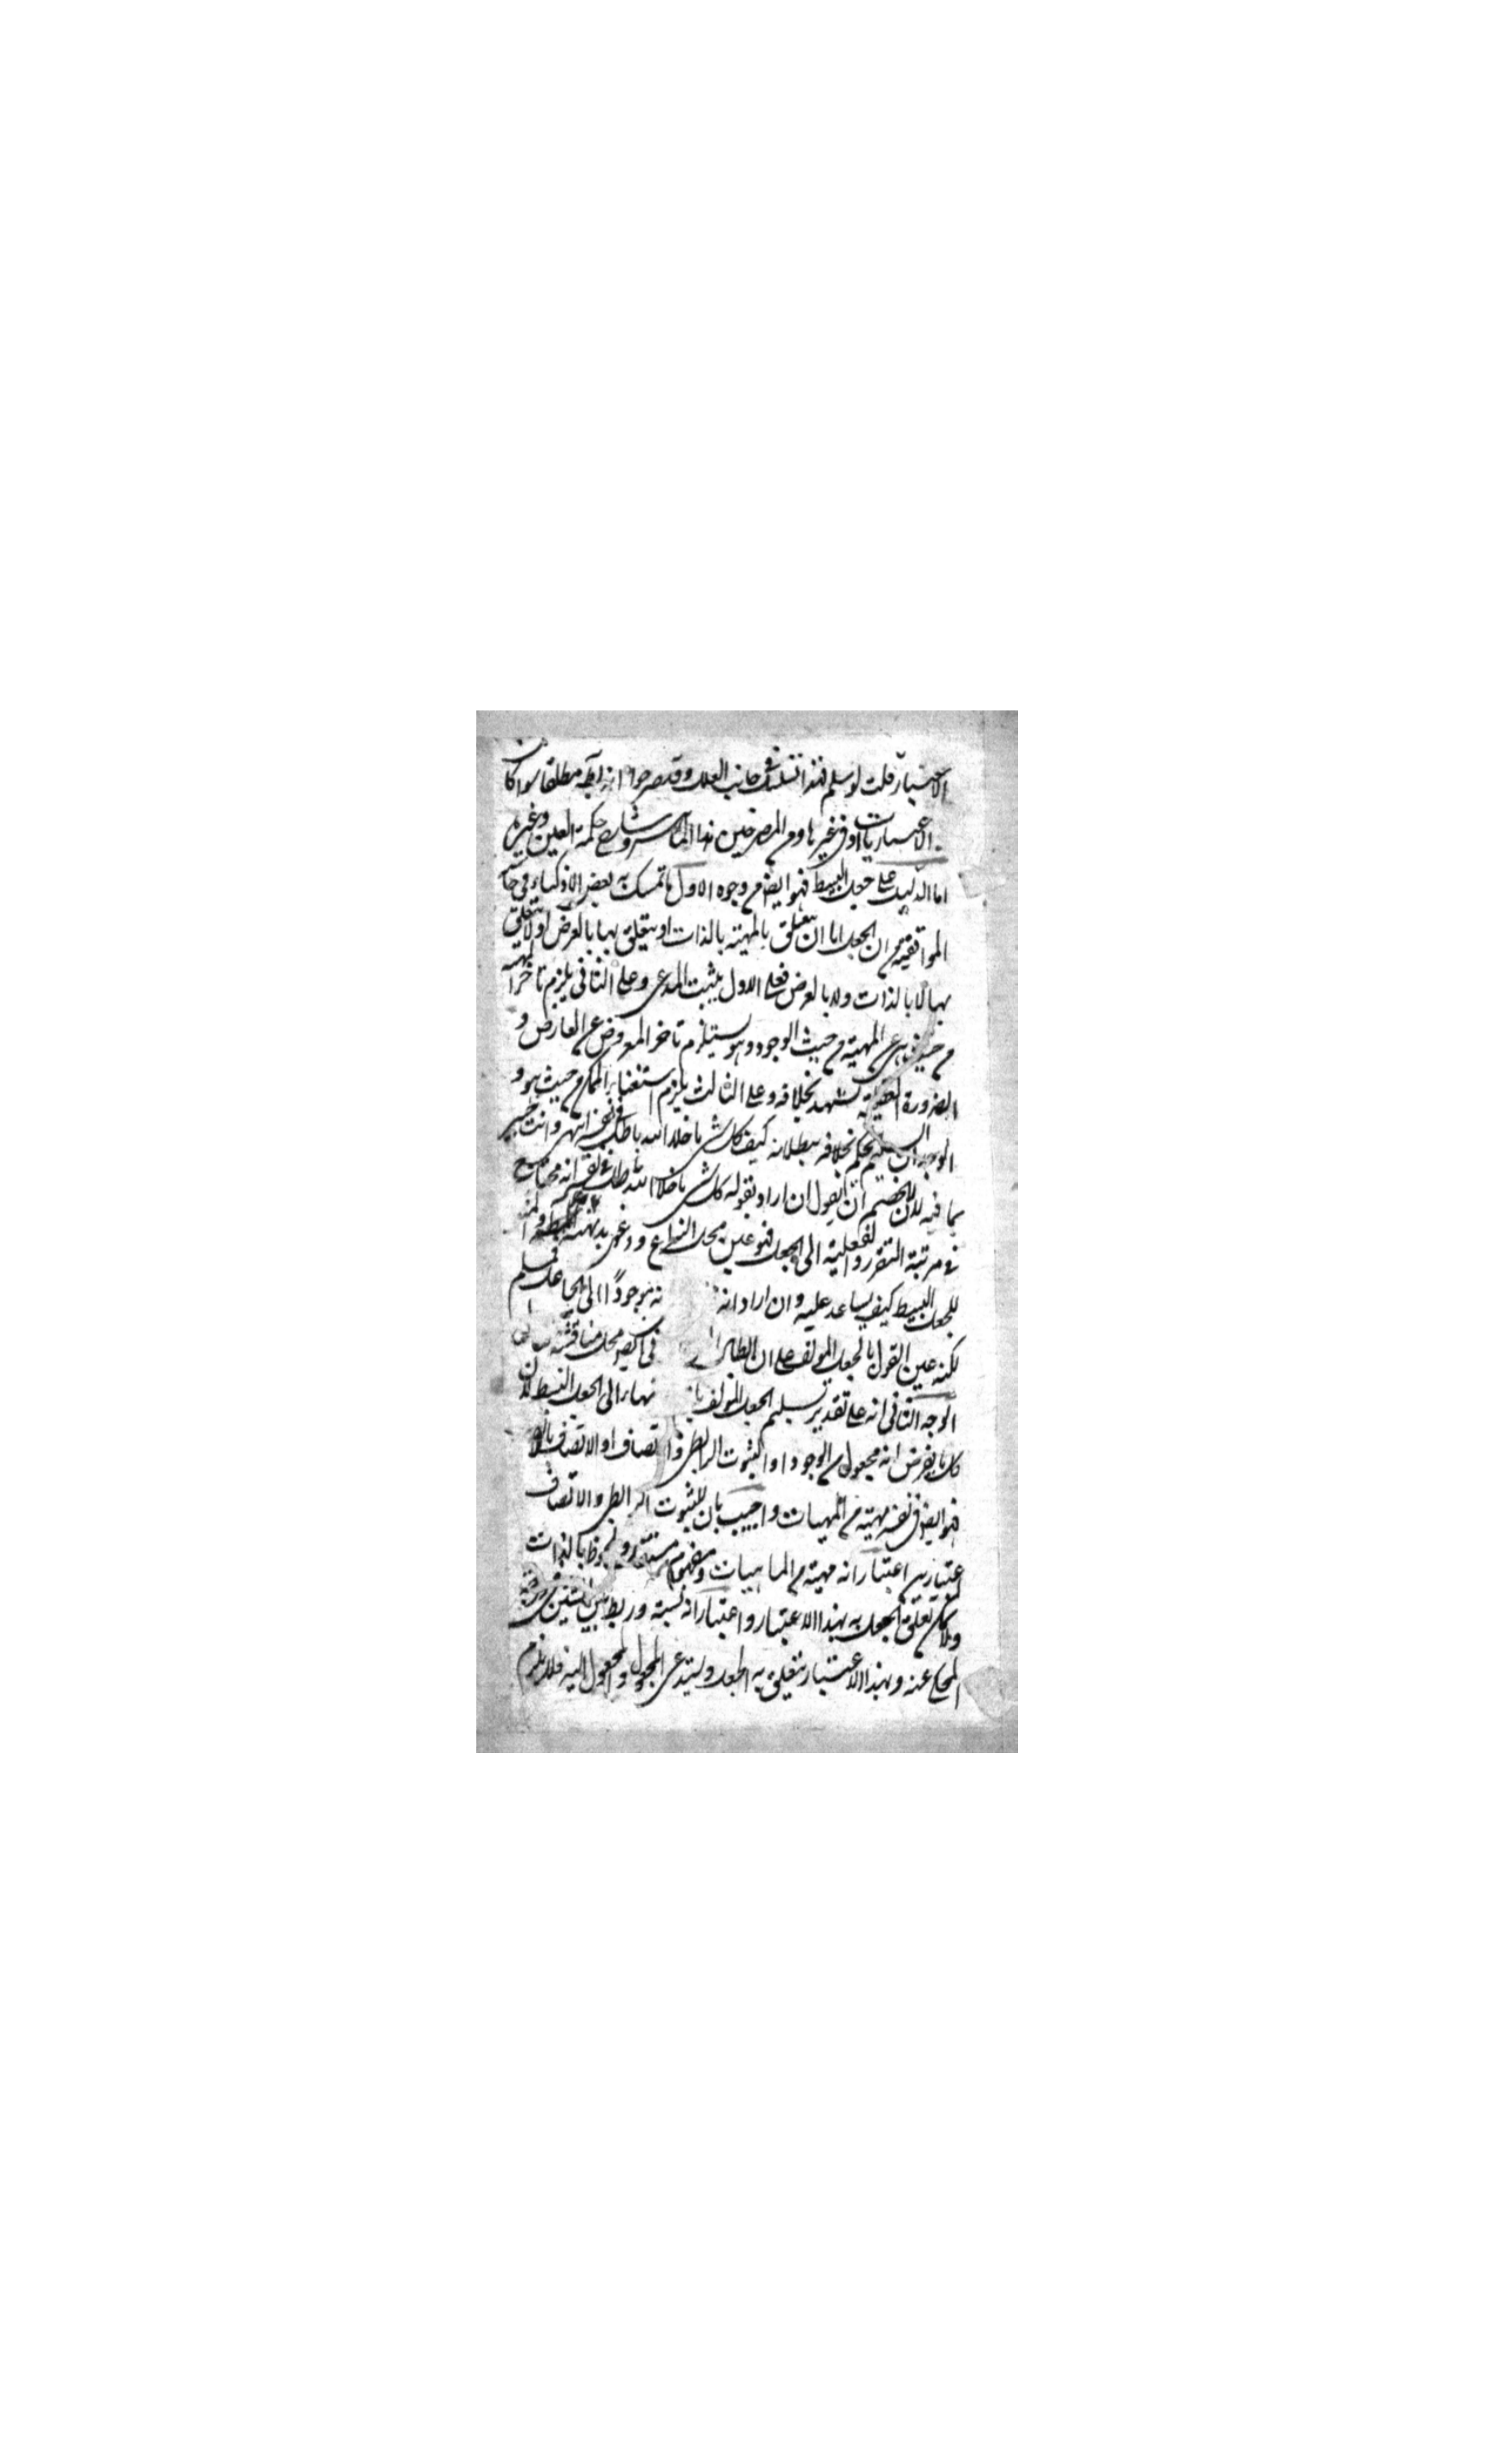 الاعتبار قلت لو سلم فهذا تسلسل في جانب العلل وقد صرحوا انه مطلقا سواء كان
الاعتباريات او في غيرها ومن المصرحين بهذا شارح حكمة العين وغيره
اما الدليل على جعل البسيط فهو ايض من وجوه الاول ما تمسك به بعض الاذكياء في
من ان الجعل اما ان يتعلق بالمهية بالذات او يتعلق بها بالعرض او لا يتعلق
بها لا بالذات ولا بالعرض فعلى الاول يثبت المدعى وعلى الثاني يلزم تاخر المهية
من حيث هي عن المهية من حيث الوجود وهو يستلزم تاخر المعروض عن العارض و
الضرورة العقلية تشهد بخلافه وعلى الثالث يلزم استغناء الممكن من حيث هو و
الوجدان السليم يحكم بخلافه ببطلانه كيف كل شئ ما خلا الله باطل في نفسه انتهى وانت خبير
بما فيه لان للخصم ان يقول ان اراد بقوله كل شئ ما خلا الله باطل في نفسه انه محتاج
في مرتبة التقرر والفعلية الى الجعل فهو عين محل النزاع ودعوى بديهية
للجعل البسيط كيف يساعد عليه وان اراد انه موجودا الى الجاعل فمسلم
لكنه عين القول بالجعل المولف على ان محل مناقشة
الوجه الثاني انه على تقدير تسليم الجعل المولف الى الجعل البسيط لان
كل ما يفرض انه مجعول من الوجود او الثبوت الرابطي او الاتصاف بالوجود
فهو ايض في نفسه مهية من المهيات واجيب بان للثبوت الرابطي والاتصاف
اعتبارين اعتبار انه مهية من الماهيات ومفهوم مستقل وملحوظ بالذات
ولا يمكن تعلق الجعل به بهذا الاعتبار واعتبار انه نسبة وربط بين
المحكي عنه وبهذا الاعتبار يتعلق به الجعل ويستدعي المجعول والمجعول اليه فلا يلزم